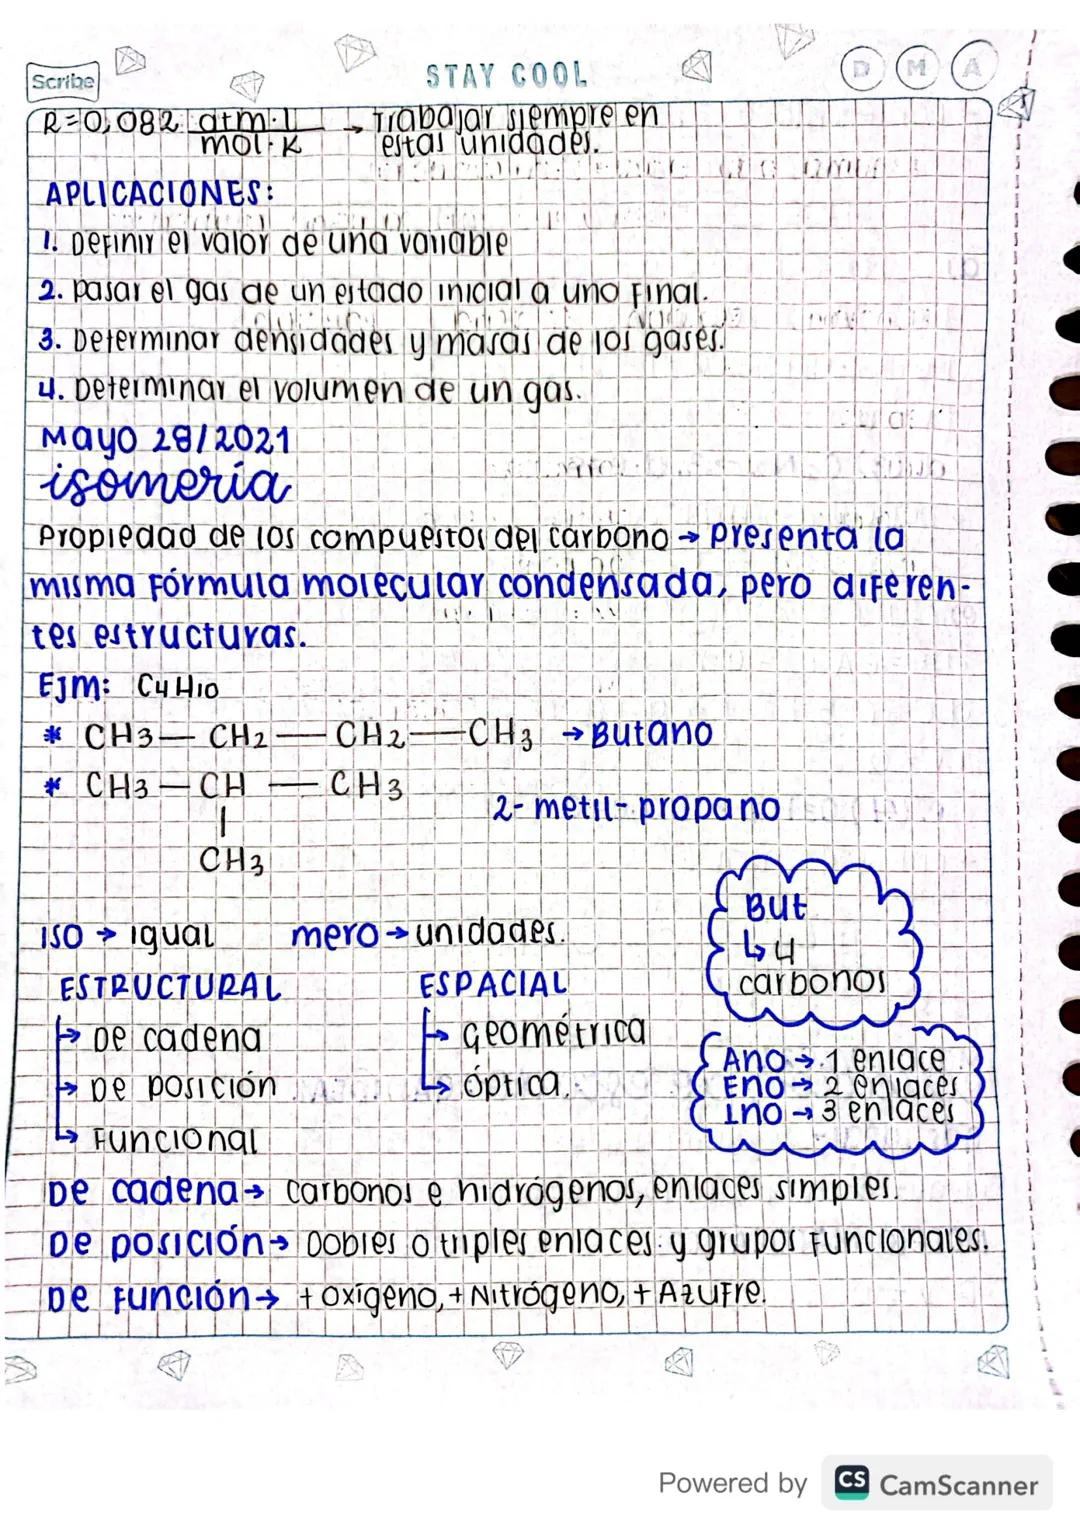 Scribe
STAY COOL
D M A
R=0,082 atm·l → Trabajar siempre en
mol·K estas unidades.
APLICACIONES:
1. Definir el valor de una variable
2. pasar el gas de un estado inicial a uno final.
3. Determinar densidades y masas de los gases.
4. Determinar el volumen de un gas.
Mayo 28/2021
isomería
Propiedad de los compuestos del carbono → Presenta la
misma fórmula molecular condensada, pero diferen-
tes estructuras.
EJM: C4H10
* CH3— CH2— CH2—CH3 → Butano
* CH3—CH — CH3
2-metil-propano
|
CH3
But
↳ 4
carbonos
ISO → igual mero → unidades.
ESTRUCTURAL ESPACIAL
→ De cadena → geométrica
→ De posición → óptica.
→ Funcional
Ano → 1 enlace
Eno → 2 enlaces
Ino → 3 enlaces
De cadena → carbonos e hidrógenos, enlaces simples.
De posición → Dobles o triples enlaces y grupos funcionales.
De función → + oxígeno, + Nitrógeno, + Azufre.
Powered by CS CamScanner